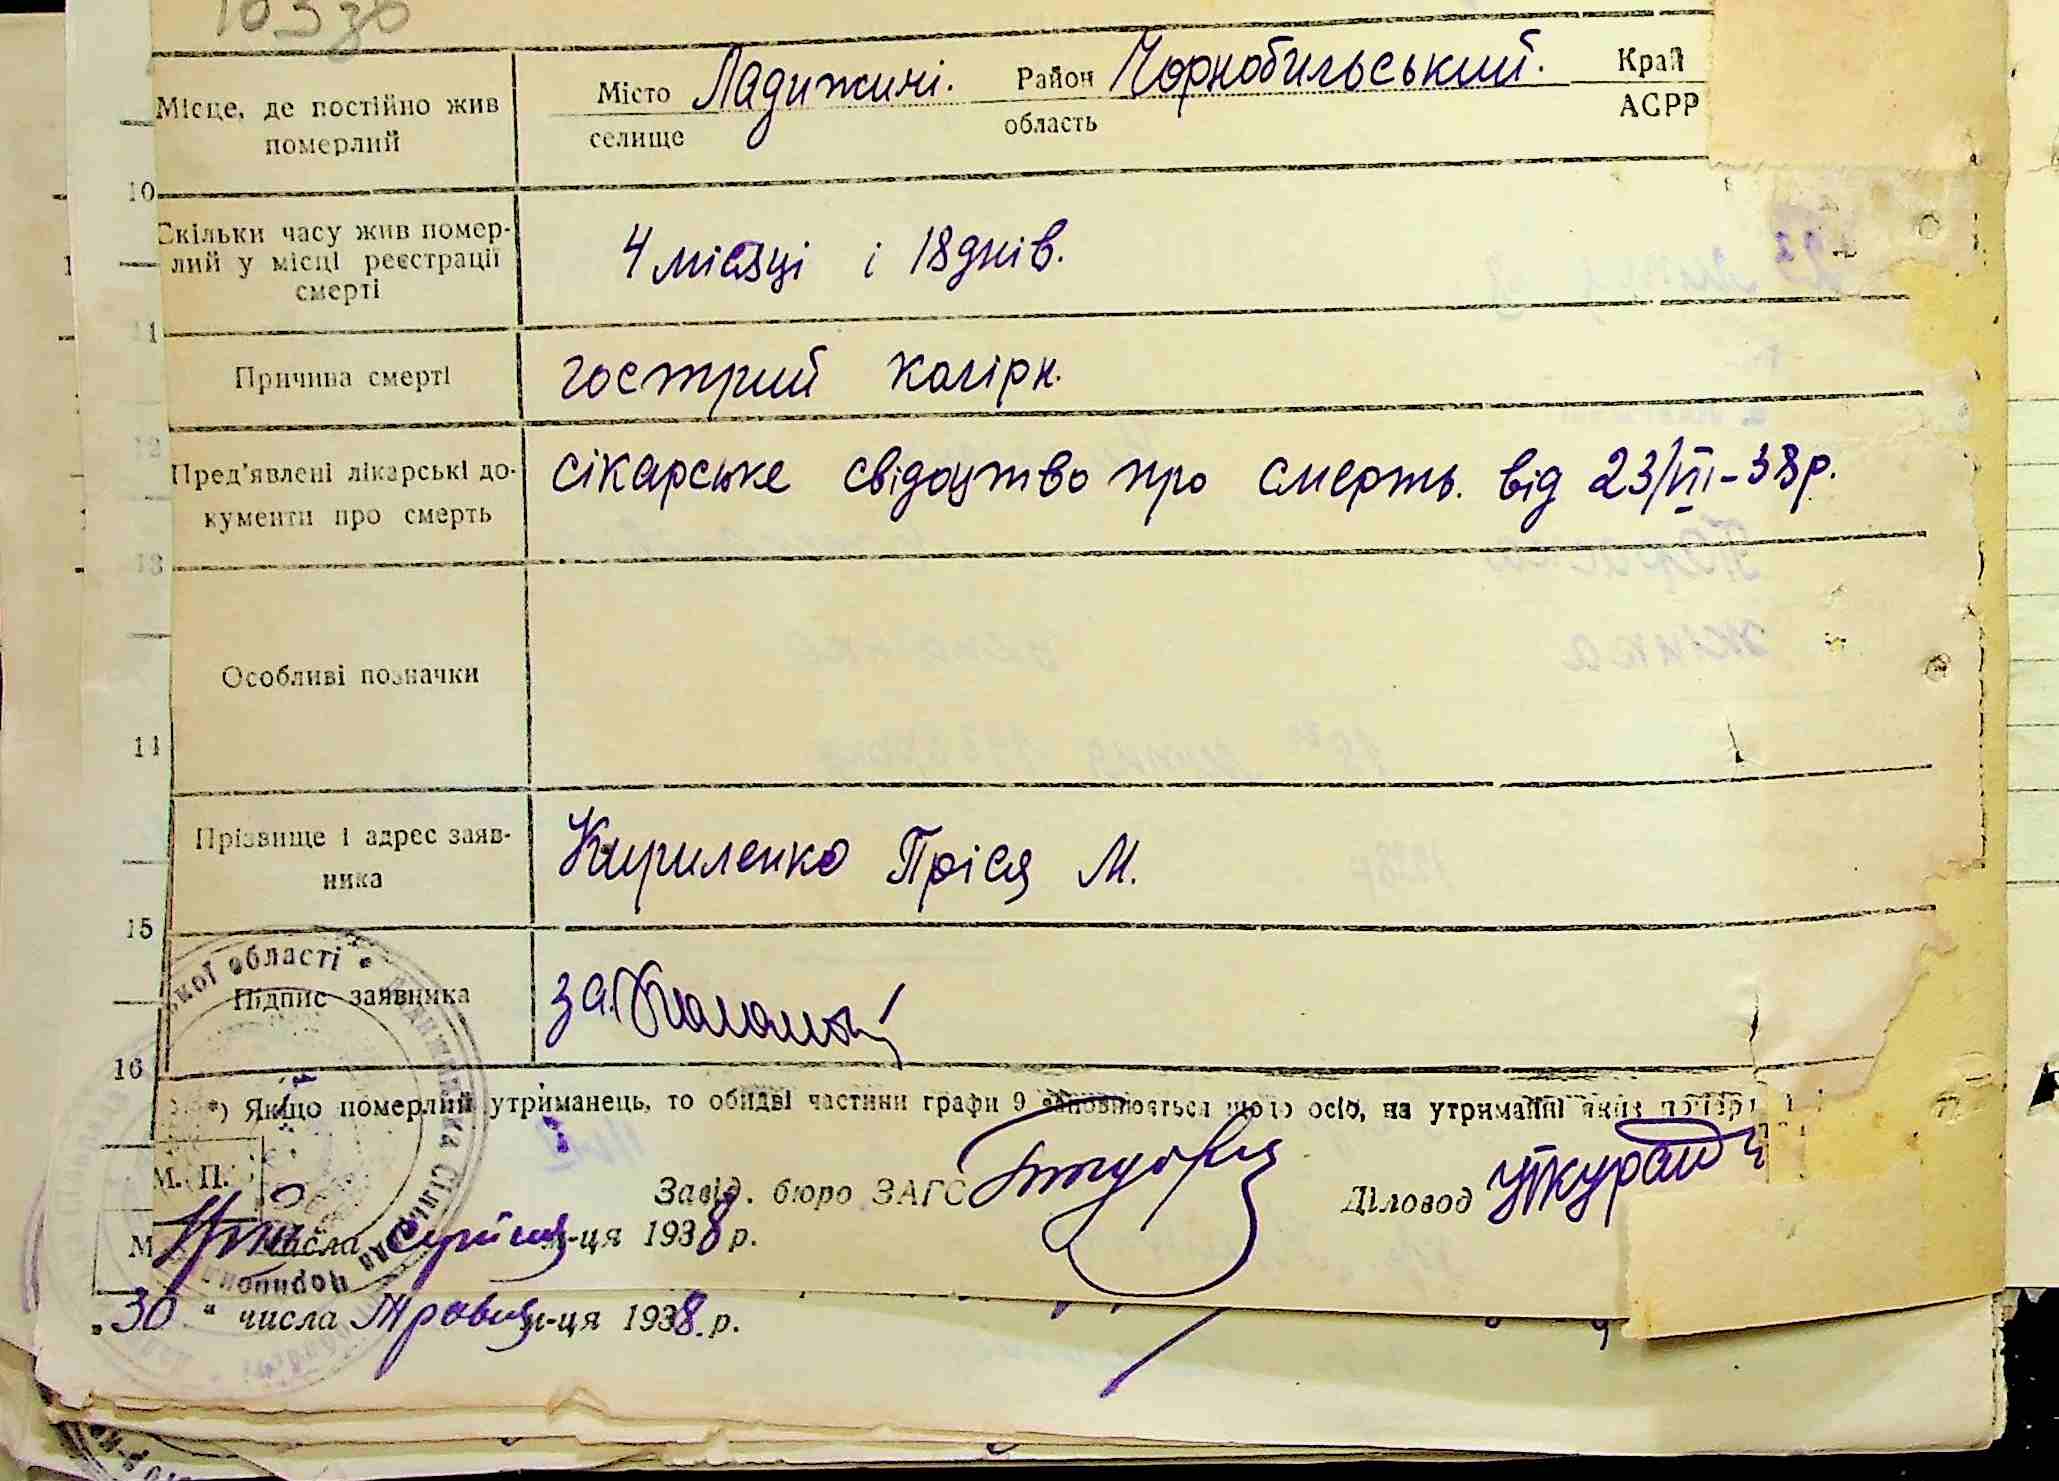 Місце, де постійно жив померлий
Місто Ладижичі. Район Чорнобильський. Край
селище область АСРР
10
Скільки часу жив помер-
лий у місці реєстрації
смерті
4 місяці і 18 днів.
11
Причина смерті
гострий колірн.
12
Пред'явлені лікарські до-
кументи про смерть
лікарське свідоцтво про смерть. від 23/VII-38р.
13
Особливі позначки
14
Прізвище і адрес заяв-
ника
Кириленко Пріся М.
15
Підпис заявника
за
16
*) Якщо померлий утриманець, то обидві частини графи 9 заповнюється щодо осіб, на утриманні яких
М. П.
Завід. бюро ЗАГС
Діловод
числа Серпня м-ця 1938 р.
„30“ числа Травня м-ця 1938 р.